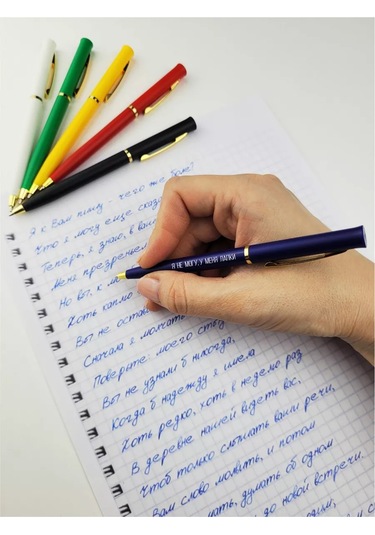 Я к Вам пишу - чего же боле?
Что я могу еще сказ
Теперь, я знаю, в ваш
Меня презрением
Но вы, к м
Хоть капл
Вы не остав
Сначала я молчать
Поверьте: моего сты
Вы не узнали б никогда,
Когда б надежду я имела
Хоть редко, хоть в неделю раз
В деревне нашей видеть вас,
Чтоб только слышать ваши речи,
Вам слово молвить, и потом
думать об одном
до новой встречи.
Я НЕ МОГУ, У МЕНЯ ЛАПКИ